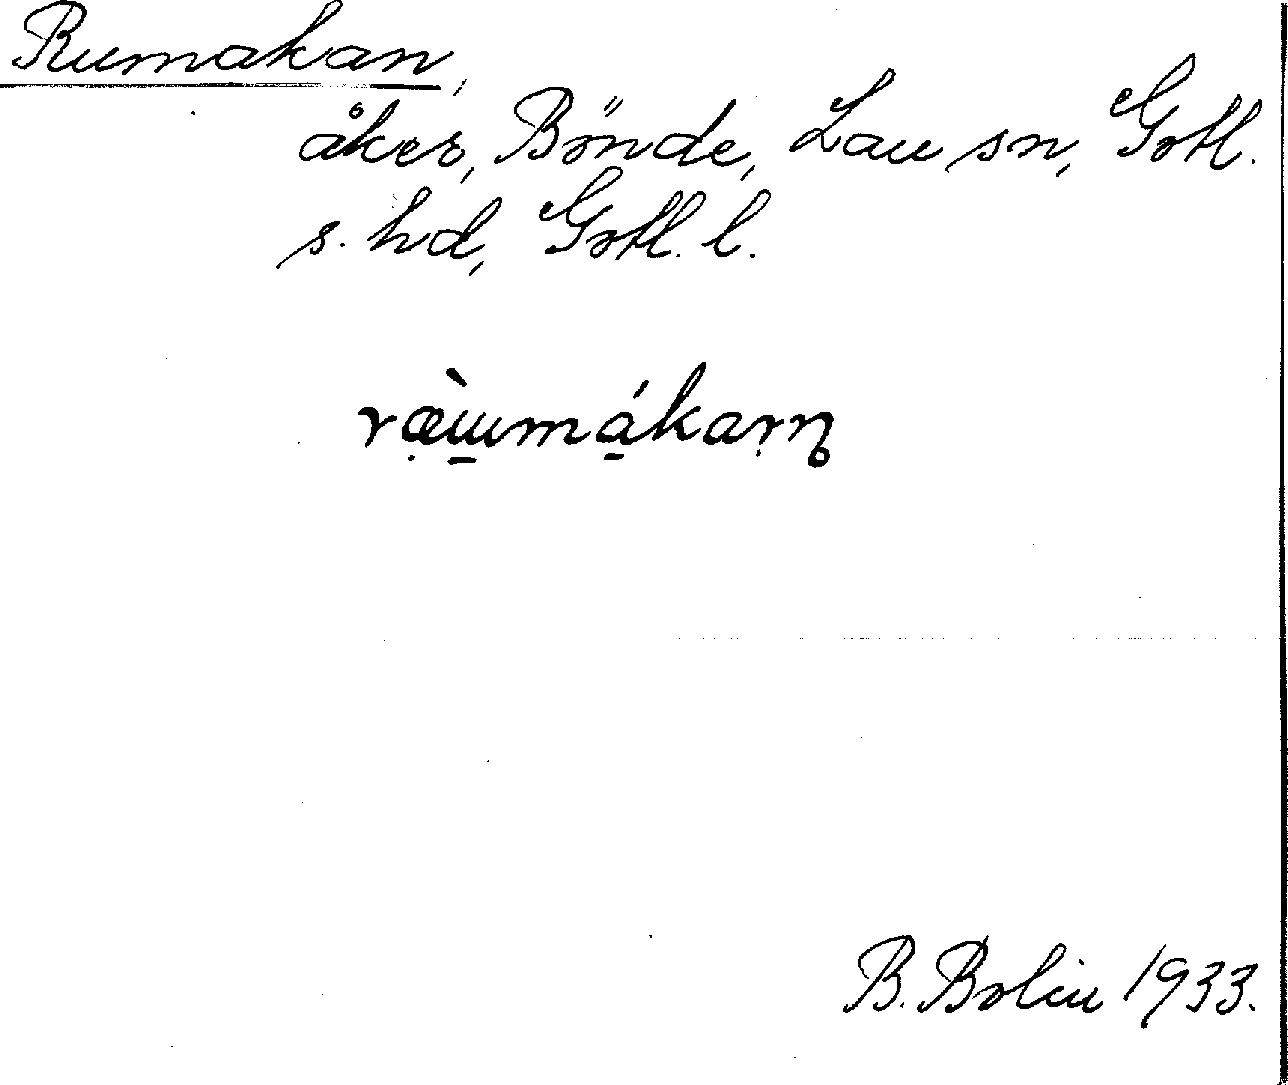 Rumakan,
åker, Bönde, Lau sn, Gotl.
s. hd, Gotl. l.
B. Bolin 1933.